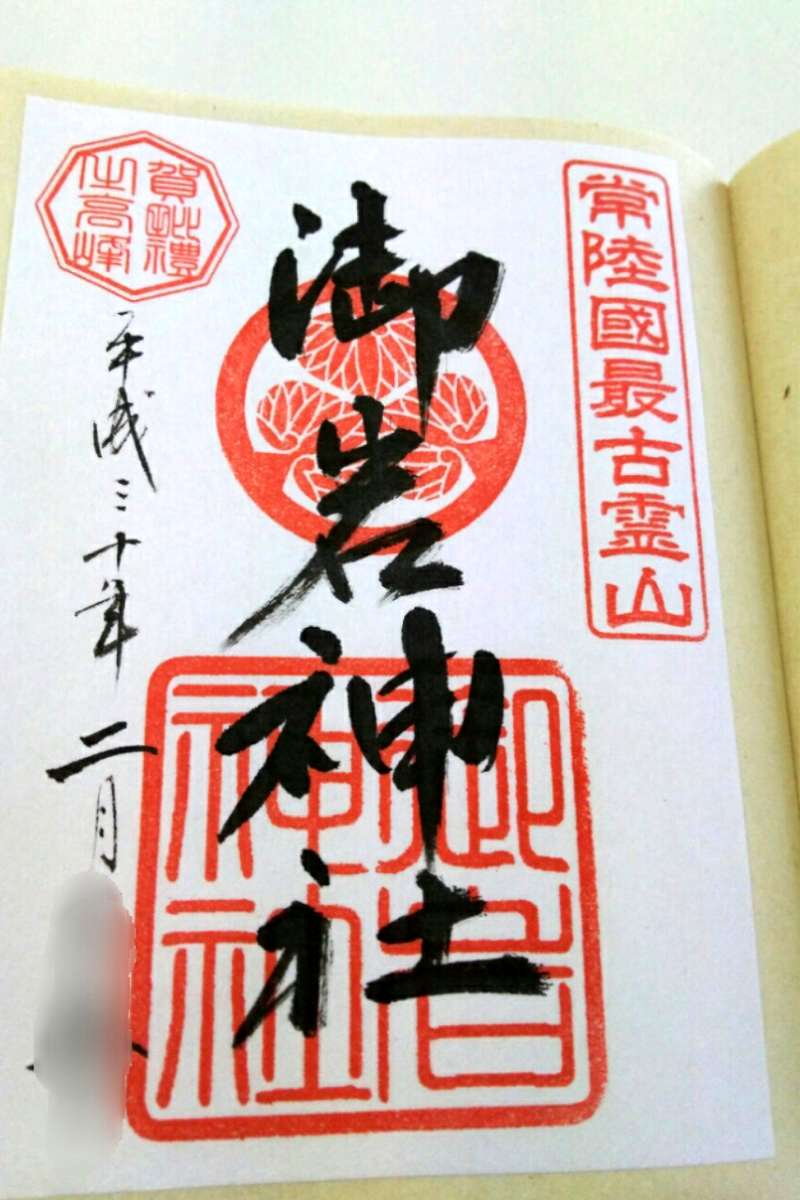 常陸國最古霊山
御岩神社
御岩神社
賀毗禮
之高峰
平成三十年二月